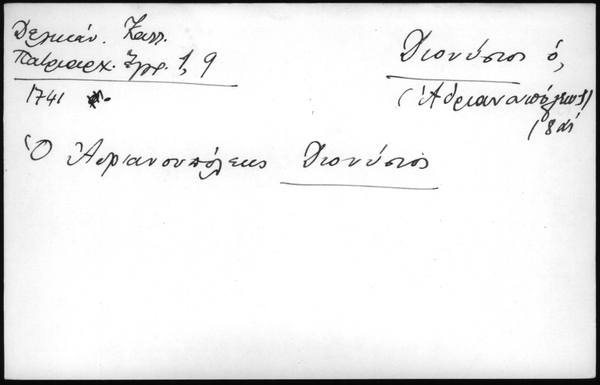 Δελικάν. Καλλ.
Πατριαρχ. Έγγρ. 1, 9
1741
Διονύσιος ό,
(Αδριανουπόλεως)
(18 αι
Ό Αδριανουπόλεως Διονύσιος